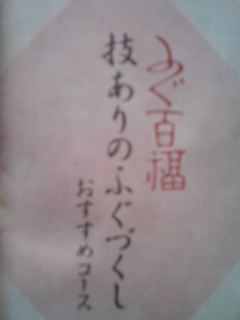 ふぐ百福
技ありのふぐづくし
おすすめコース